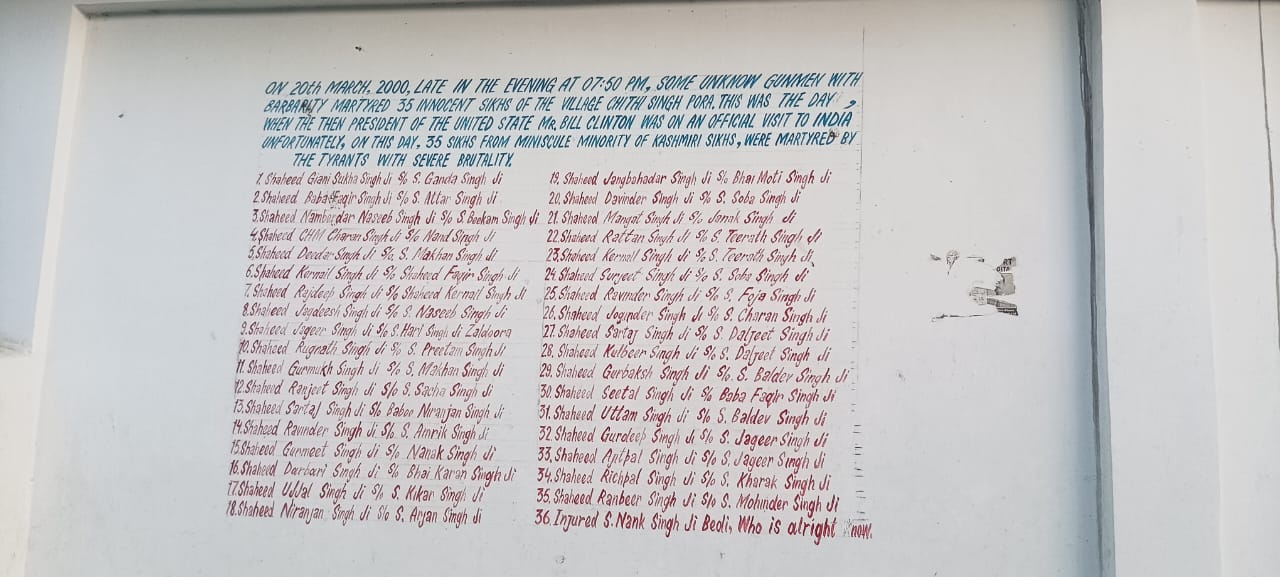 ON 20th MARCH. 2000, LATE IN THE EVENING AT 07:50 PM., SOME UNKNOW GUNMEN WITH
BARBARITY MARTYRED 35 INNOCENT SIKHS OF THE VILLAGE CHITHI SINGH PORA. THIS WAS THE DAY,
WHEN THE THEN PRESIDENT OF THE UNITED STATE MR. BILL CLINTON WAS ON AN OFFICIAL VISIT TO INDIA
UNFORTUNATELY, ON THIS DAY. 35 SIKHS FROM MINISCULE MINORITY OF KASHMIRI SIKHS, WERE MARTYRED BY
THE TYRANTS WITH SEVERE BRUTALITY.
1. Shaheed Giani Sukha Singh Ji S/o S. Ganda Singh Ji
2. Shaheed Baba Faqir Singh Ji S/o S. Attar Singh Ji
3. Shaheed Namberdar Naseeb Singh Ji S/o S. Beekam Singh Ji
4. Shaheed CHM Charan Singh Ji S/o Nand Singh Ji
5. Shaheed Deedar Singh Ji S/o S. Makhan Singh Ji
6. Shaheed Kernail Singh Ji S/o Shaheed Faqir Singh Ji
7. Shaheed Rajdeep Singh Ji S/o Shaheed Kernail Singh Ji
8. Shaheed Singh Ji S/o S. Naseeb Singh Ji
9. Shaheed Jageer Singh Ji S/o S. Hari Singh Ji
10. Shaheed Rugnath Singh Ji S/o S. Preetam Singh Ji
11. Shaheed Gurmukh Singh Ji S/o S. Makhan Singh Ji
12. Shaheed Ranjeet Singh Ji S/o S. Sacha Singh Ji
13. Shaheed Sartaj Singh Ji S/o Baboo Niranjan Singh Ji
14. Shaheed Ravinder Singh Ji S/o S. Amrik Singh Ji
15. Shaheed Gurmeet Singh Ji S/o Nanak Singh Ji
16. Shaheed Darbari Singh Ji S/o Bhai Karan Singh Ji
17. Shaheed Ujjal Singh Ji S/o S. Kikar Singh Ji
18. Shaheed Niranjan Singh Ji S/o S. Arjan Singh Ji
19. Shaheed Jangbahadar Singh Ji S/o Bhai Moti Singh Ji
20. Shaheed Davinder Singh Ji S/o S. Soba Singh Ji
21. Shaheed Mangat Singh Ji S/o Janak Singh Ji
22. Shaheed Rattan Singh Ji S/o S. Teerath Singh Ji
23. Shaheed Kernail Singh Ji S/o S. Teerath Singh Ji
24. Shaheed Surjeet Singh Ji S/o S. Soba Singh Ji
25. Shaheed Ravinder Singh Ji S/o S. Foja Singh Ji
26. Shaheed Joginder Singh Ji S/o S. Charan Singh Ji
27. Shaheed Sartaj Singh Ji S/o S. Daljeet Singh Ji
28. Shaheed Kulbeer Singh Ji S/o S. Daljeet Singh Ji
29. Shaheed Gurbaksh Singh Ji S/o. S. Baldev Singh Ji
30. Shaheed Seetal Singh Ji S/o Baba Faqir Singh Ji
31. Shaheed Uttam Singh Ji S/o S. Baldev Singh Ji
32. Shaheed Gurdeep Singh Ji S/o S. Jageer Singh Ji
33. Shaheed Ajitpal Singh Ji S/o S. Jageer Singh Ji
34. Shaheed Richpal Singh Ji S/o S. Kharak Singh Ji
35. Shaheed Ranbeer Singh Ji S/o S. Mohinder Singh Ji
36. Injured S. Nank Singh Ji Bedi, Who is alright now.